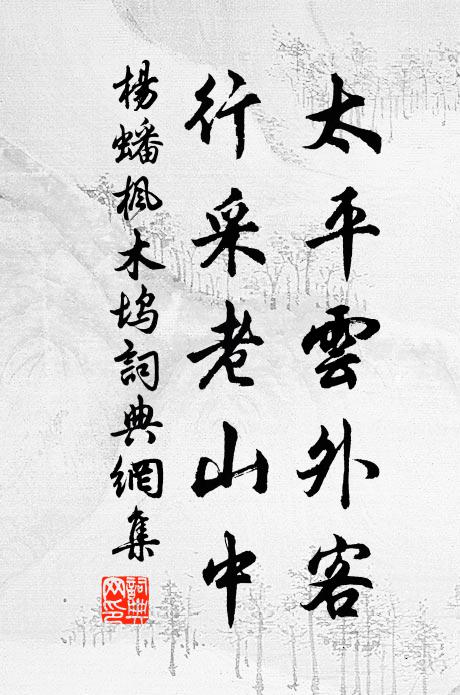 太平雲外客
行采老山中
楊蟠楓木塢詞典網集
詞典
網印